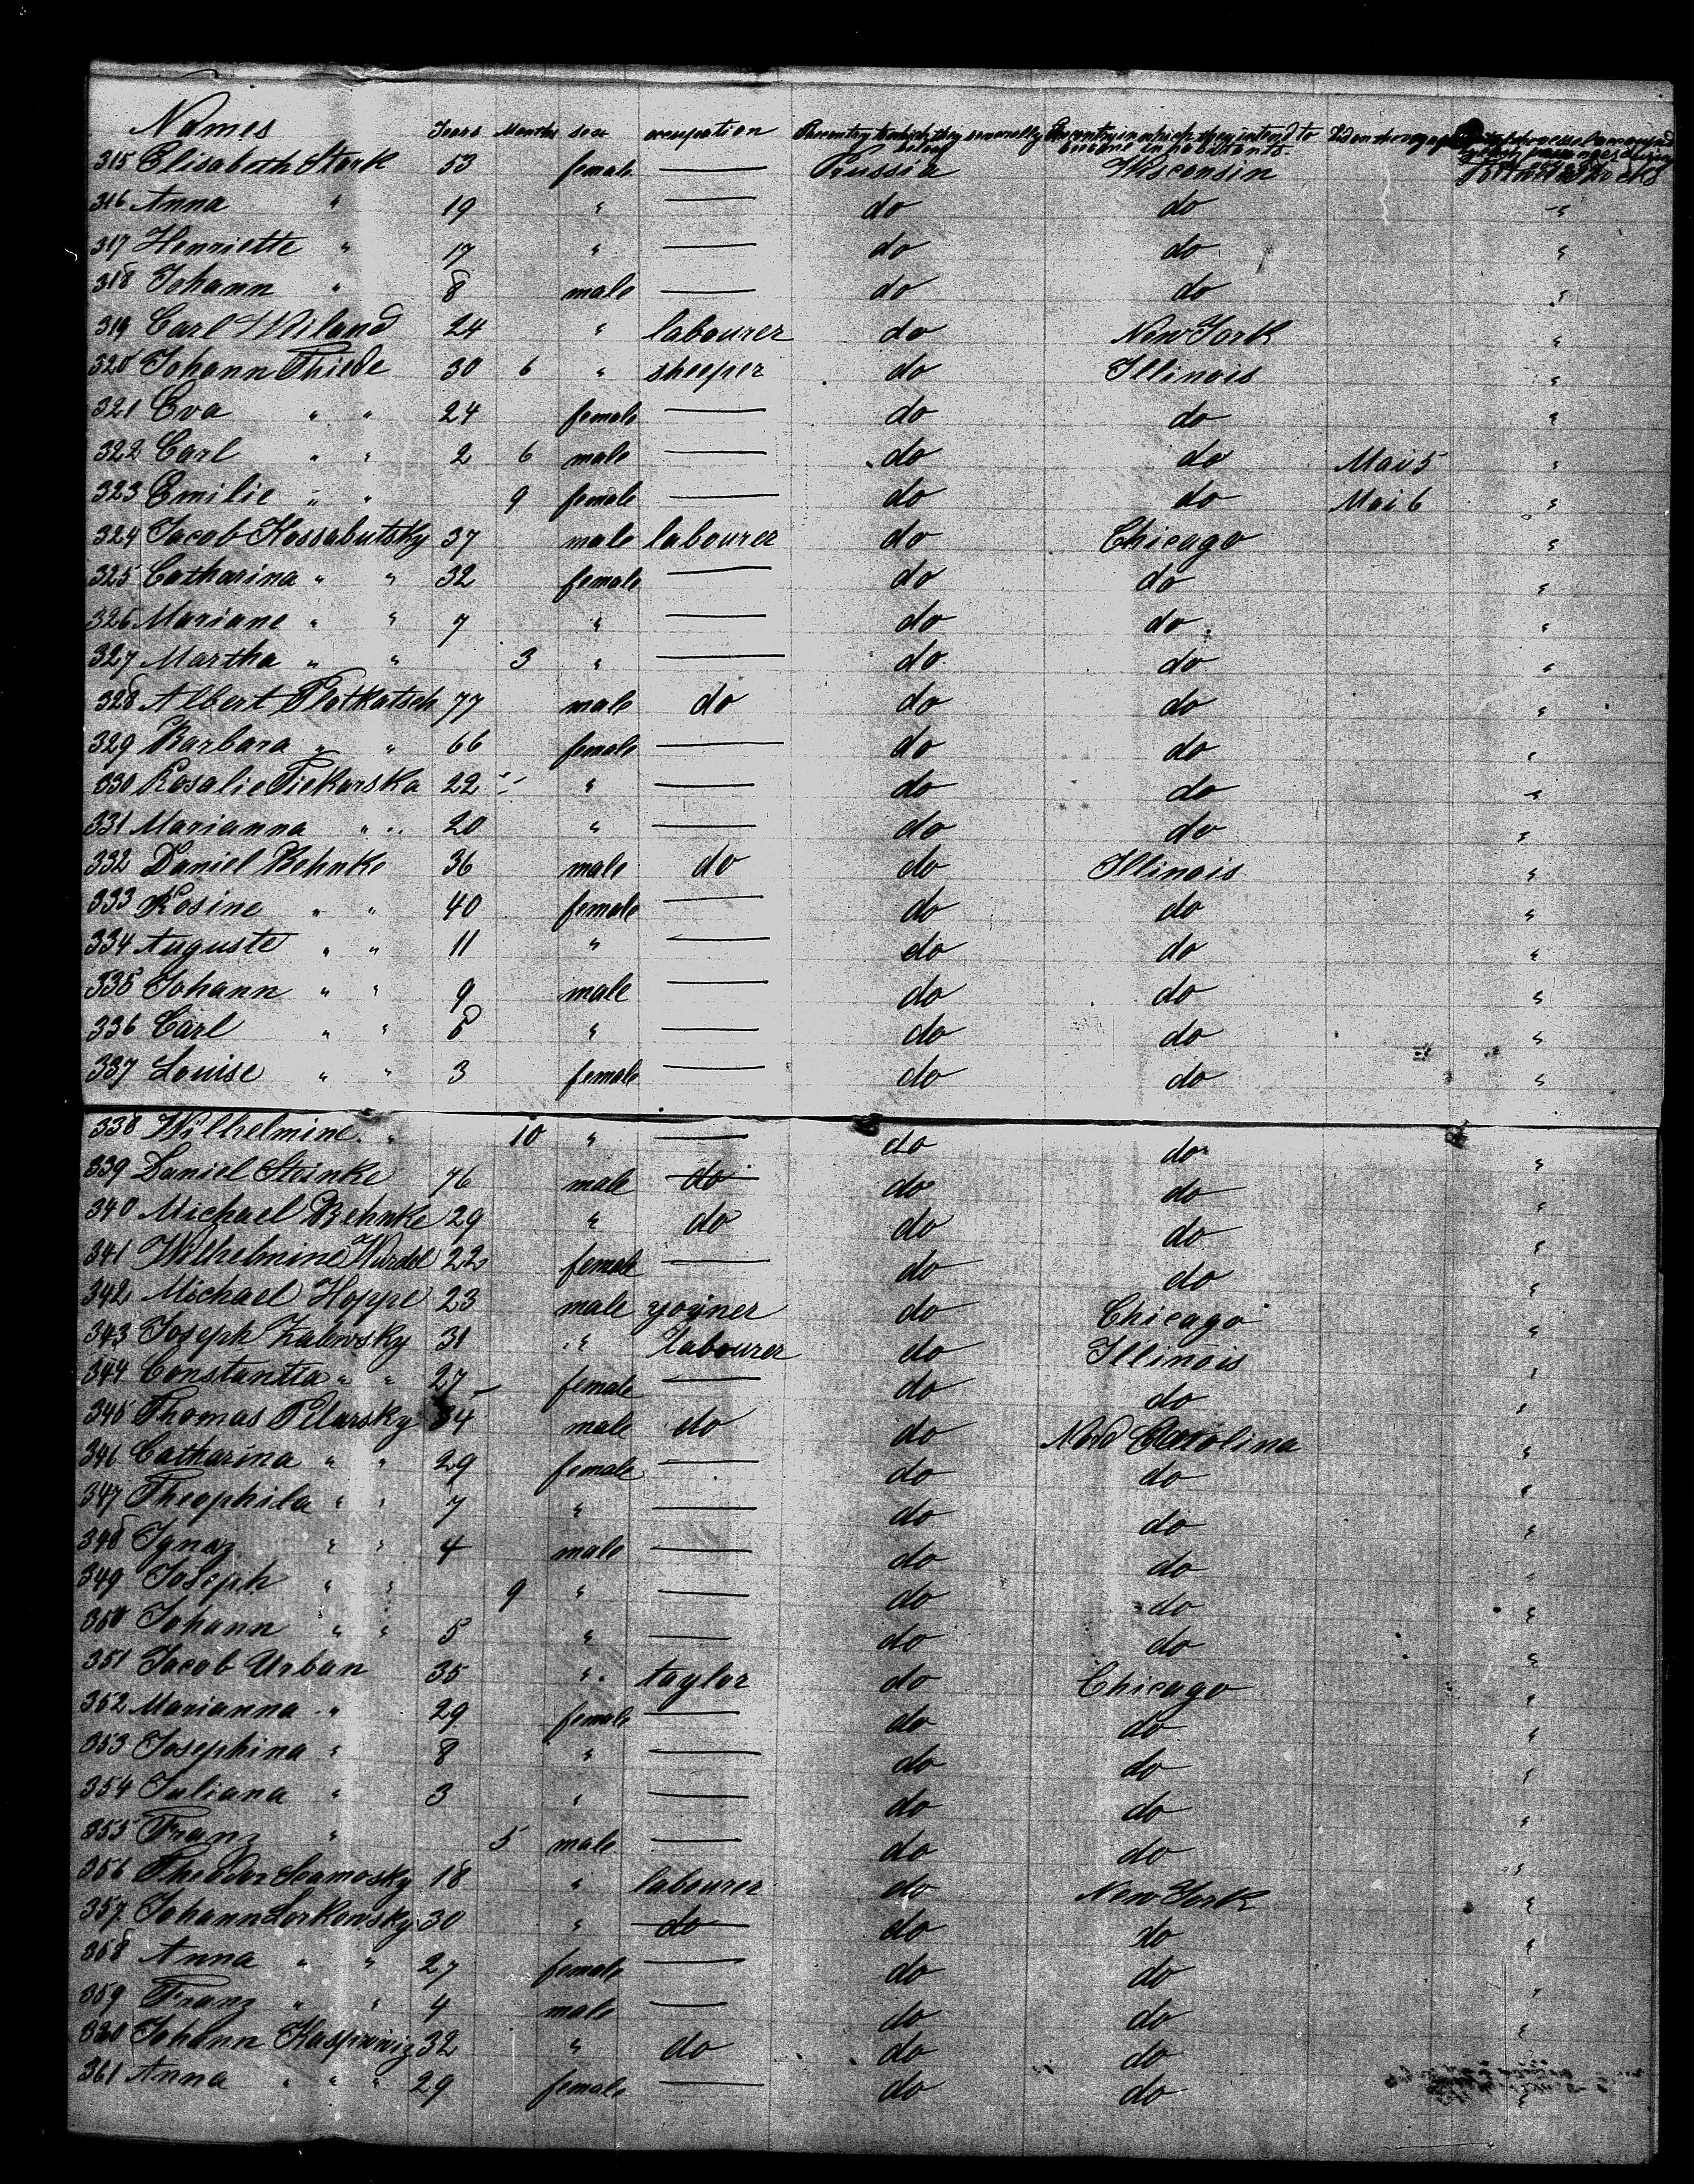 Names Years Months sex occupation The country to which they severally belong The country in which they intend to become inhabitants. Died on the voyage
315 Elisabeth Stork 53 female — Prussia Wisconsin
316 Anna " 19 " — do do "
317 Henriette " 17 " — do do "
318 Johann " 8 male — do do "
319 Carl Wiland 24 " labourer do New York "
320 Johann Thiede 30 6 " sheeper do Illinois "
321 Eva " " 24 female — do do "
322 Carl " " 2 6 male — do do Mai 5 "
323 Emilie " " 9 female — do do Mai 6 "
324 Jacob Kossabutsky 37 male labourer do Chicago "
325 Catharina " " 32 female — do do "
326 Mariane " " 7 " — do do "
327 Martha " " 3 " — do do "
328 Albert Plotkatsch 77 male do do do "
329 Barbara " " 66 female — do do "
330 Rosalie Piekarska 22 " — do do "
331 Marianna " " 20 " — do do "
332 Daniel Behnke 36 male do do Illinois "
333 Rosine " " 40 female — do do "
334 Auguste " " 11 " — do do "
335 Johann " " 9 male — do do "
336 Carl " " 8 " — do do "
337 Louise " " 3 female — do do "
338 Wilhelmine " 10 " — do do "
339 Daniel Steinke 76 male do do do "
340 Michael Behnke 29 " do do do "
341 Wilhelmine Wurdel 22 female — do do "
342 Michael Hoppe 23 male yoyner do Chicago "
343 Joseph Zalewsky 31 " labourer do Illinois "
344 Constantia " " 27 female — do do "
345 Thomas Pelarsky 34 male do do Nord Carolina "
346 Catharina " " 29 female — do do "
347 Theophila " " 7 " — do do "
348 Ignaz " " 4 male — do do "
349 Joseph " " 9 " — do do "
350 Johann " " 5 " — do do "
351 Jacob Urban 35 " taylor do Chicago "
352 Marianna " 29 female — do do "
353 Josephina " 8 " — do do "
354 Juliana " 3 " — do do "
355 Franz " 5 male — do do "
356 Theodor Scamosky 18 " labourer do New York "
357 Johann Lorkowsky 30 " do do do "
358 Anna " " 27 female — do do "
359 Franz " " 4 male — do do "
360 Johann Kasprwiz 32 " do do do
361 Anna " " " 29 female — do do